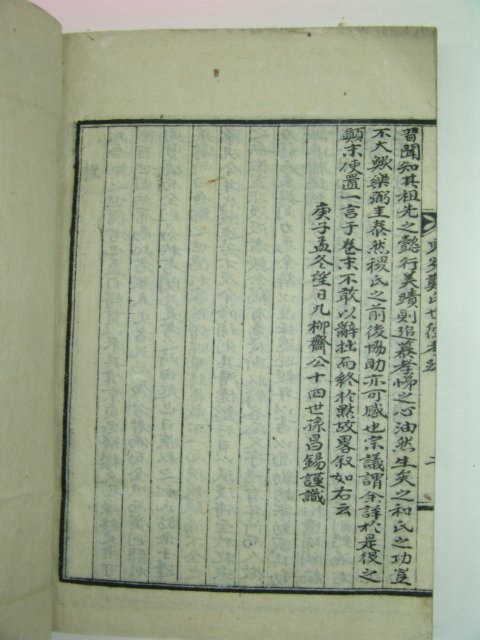 習聞知其祖先之懿行美蹟則追慕孝悌之心油然生矣之和氏之功豈
不大歟樂弼主泰然稷氏之前後協助亦可感也宗議謂余詳於是役之
顚末使置一言于卷末不敢以辭拙而終於默故畧叙如右云
庚子孟冬望日九柳齋公十四世孫昌錫謹識